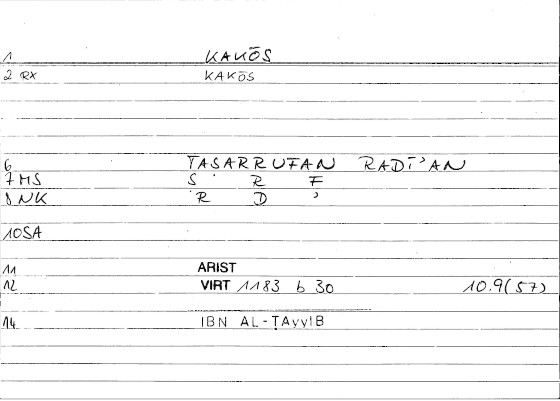 1 KAKŌS
2 RX KAKŌS
6 TASARRUFAN RADĪ'AN
7 MS S R F
8 NK R D '
10 SA
11 ARIST
12 VIRT 1183 b 30 10.9(57)
14 IBN AL-ṬAyyIB